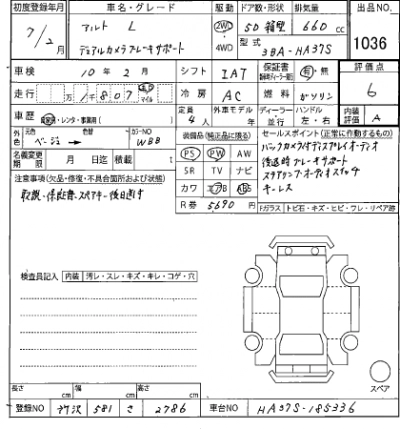 初度登録年月 車名・グレード 駆動 ドア数・形状 排気量 出品NO.
7/2月 アルト L 2WD 5D 箱型 660cc
デュアルカメラブレーキサポート 4WD 型式 3BA-HA37S 1036
車検 10年2月 シフト IAT 保証書 有・無 評価点
走行 1千807 km マイル 冷房 AC 燃料 ガソリン 6
車歴 自家・レンタ・事業用( ) 定員 4人 外車モデル 年 ディーラー 並行 ハンドル 左・右 内装評価 A
外色 元色 ベージュ 色替 カラーNO WBB 装備品(純正品に限る) セールスポイント(正常に作動するもの)
名義変更期限 月 日迄 積載 t PS PW AW バックカメラ付ディスプレイオーディオ
注意事項(欠品・修復・不具合箇所および状態) SR TV ナビ 後退時ブレーキサポート
取説・保証書・スペアキー後日渡す カワ エアB ABS ステアリングオーディオスイッチ
R券 5690円 キーレス
Fガラス トビ石・キズ・ヒビ・ワレ・リペア跡
検査員記入 内装 汚レ・スレ・キズ・キレ・コゲ・穴
スペア
長さ cm 幅 cm 高さ cm
登録NO 所沢 581 さ 2786 車台NO HA37S-185336